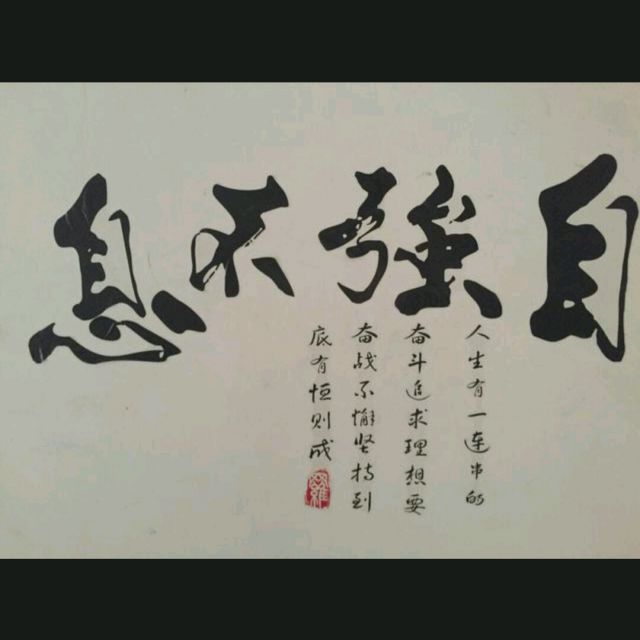 自強不息
人生有一连串的
奋斗追求理想要
奋战不懈坚持到
底有恒则成